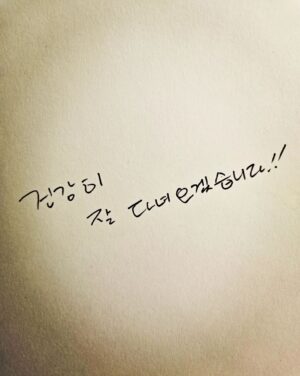 건강히
잘 다녀오겠습니다.!!